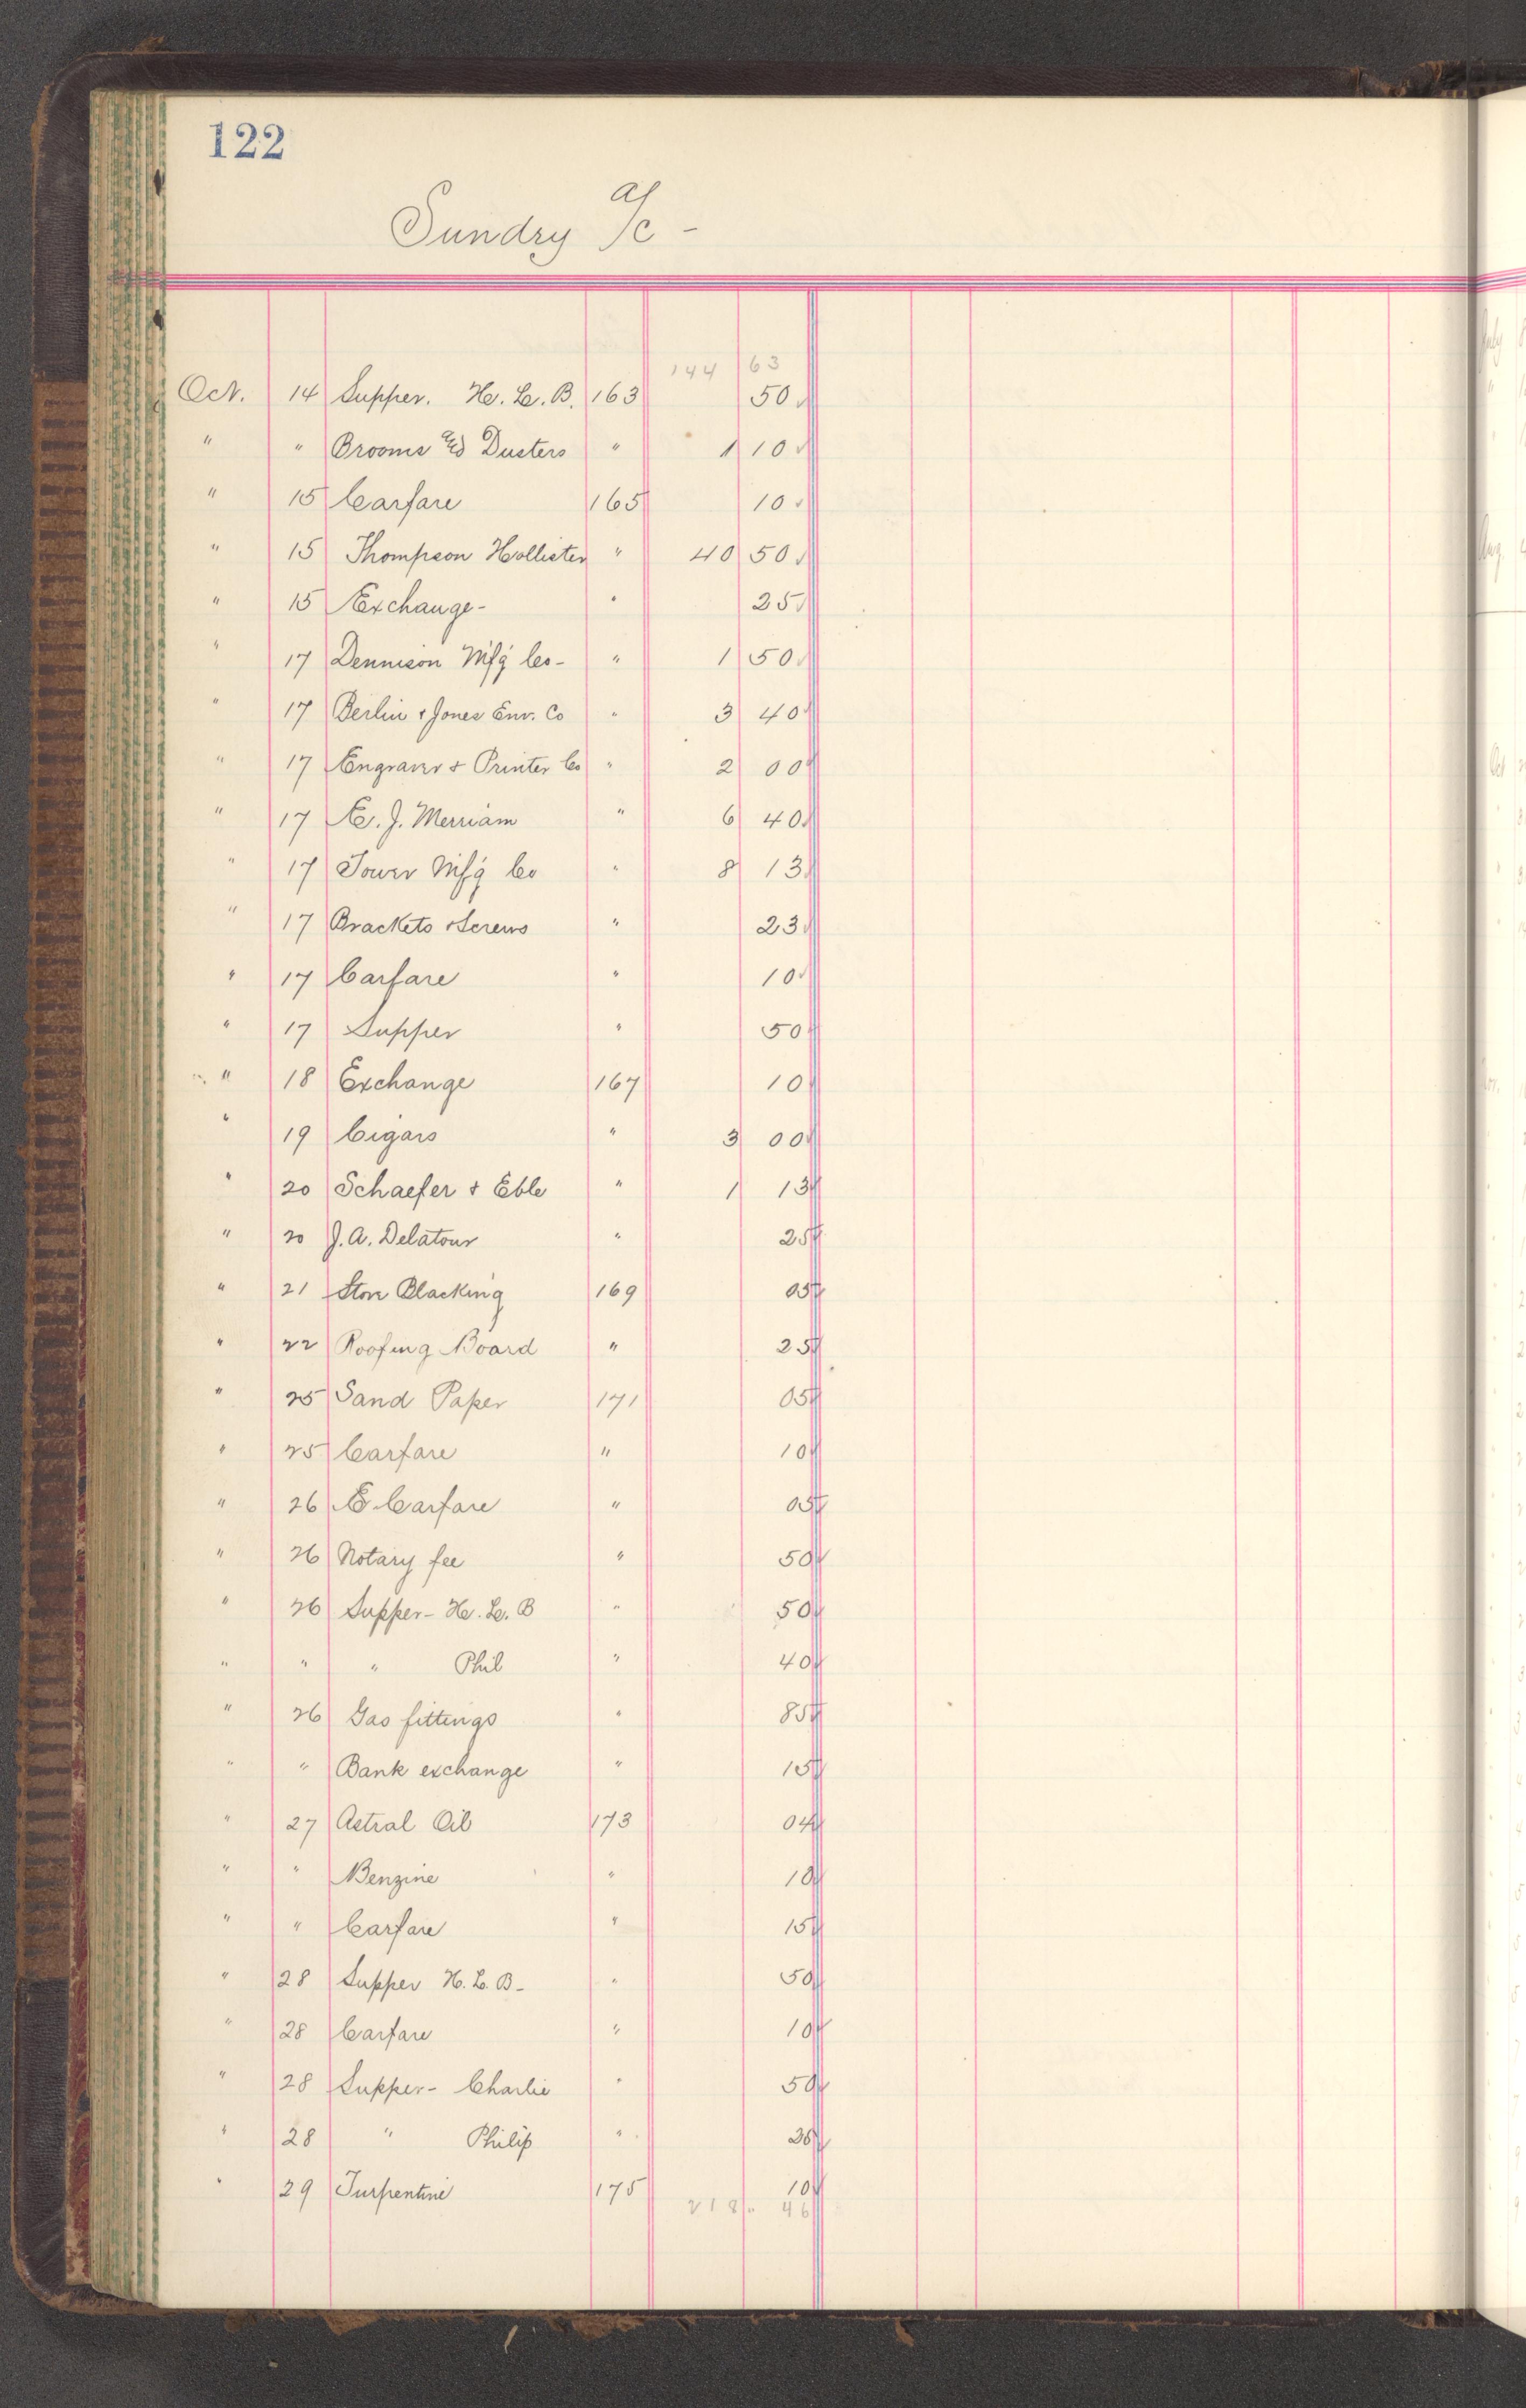 122
Sundry a/c -
144 63
Oct. 14 Supper. H. L. B. 163 50 ✓
" " Brooms and Dusters " 1 10 ✓
" 15 Carfare 165 10 ✓
" 15 Thompson Hollister " 40 50 ✓
" 15 Exchange - " 25 ✓
" 17 Dennison Mfg Co - " 1 50 ✓
" 17 Berlin & Jones Env. Co " 3 40 ✓
" 17 Engraver & Printer Co " 2 00 ✓
" 17 E. J. Merriam " 6 40 ✓
" 17 Tower Mfg Co " 8 13 ✓
" 17 Brackets & Screws " 23 ✓
" 17 Carfare " 10 ✓
" 17 Supper " 50 ✓
" 18 Exchange 167 10 ✓
" 19 Cigars " 3 00 ✓
" 20 Schaefer & Eble " 1 13 ✓
" 20 J. A. Delatour " 25 ✓
" 21 Stove Blacking 169 05 ✓
" 22 Roofing Board " 25 ✓
" 25 Sand Paper 171 05 ✓
" 25 Carfare " 10 ✓
" 26 E Carfare " 05 ✓
" 26 Notary fee " 50 ✓
" 26 Supper - H. L. B " 50 ✓
" " " Phil " 40 ✓
" 26 Gas fittings " 85 ✓
" " Bank exchange " 15 ✓
" 27 Astral Oil 173 04 ✓
" " Benzine " 10 ✓
" " Carfare " 15 ✓
" 28 Supper H. L. B - " 50 ✓
" 28 Carfare " 10 ✓
" 28 Supper - Charlie " 50 ✓
" 28 " Philip " 35 ✓
" 29 Turpentine 175 10 ✓
218 46